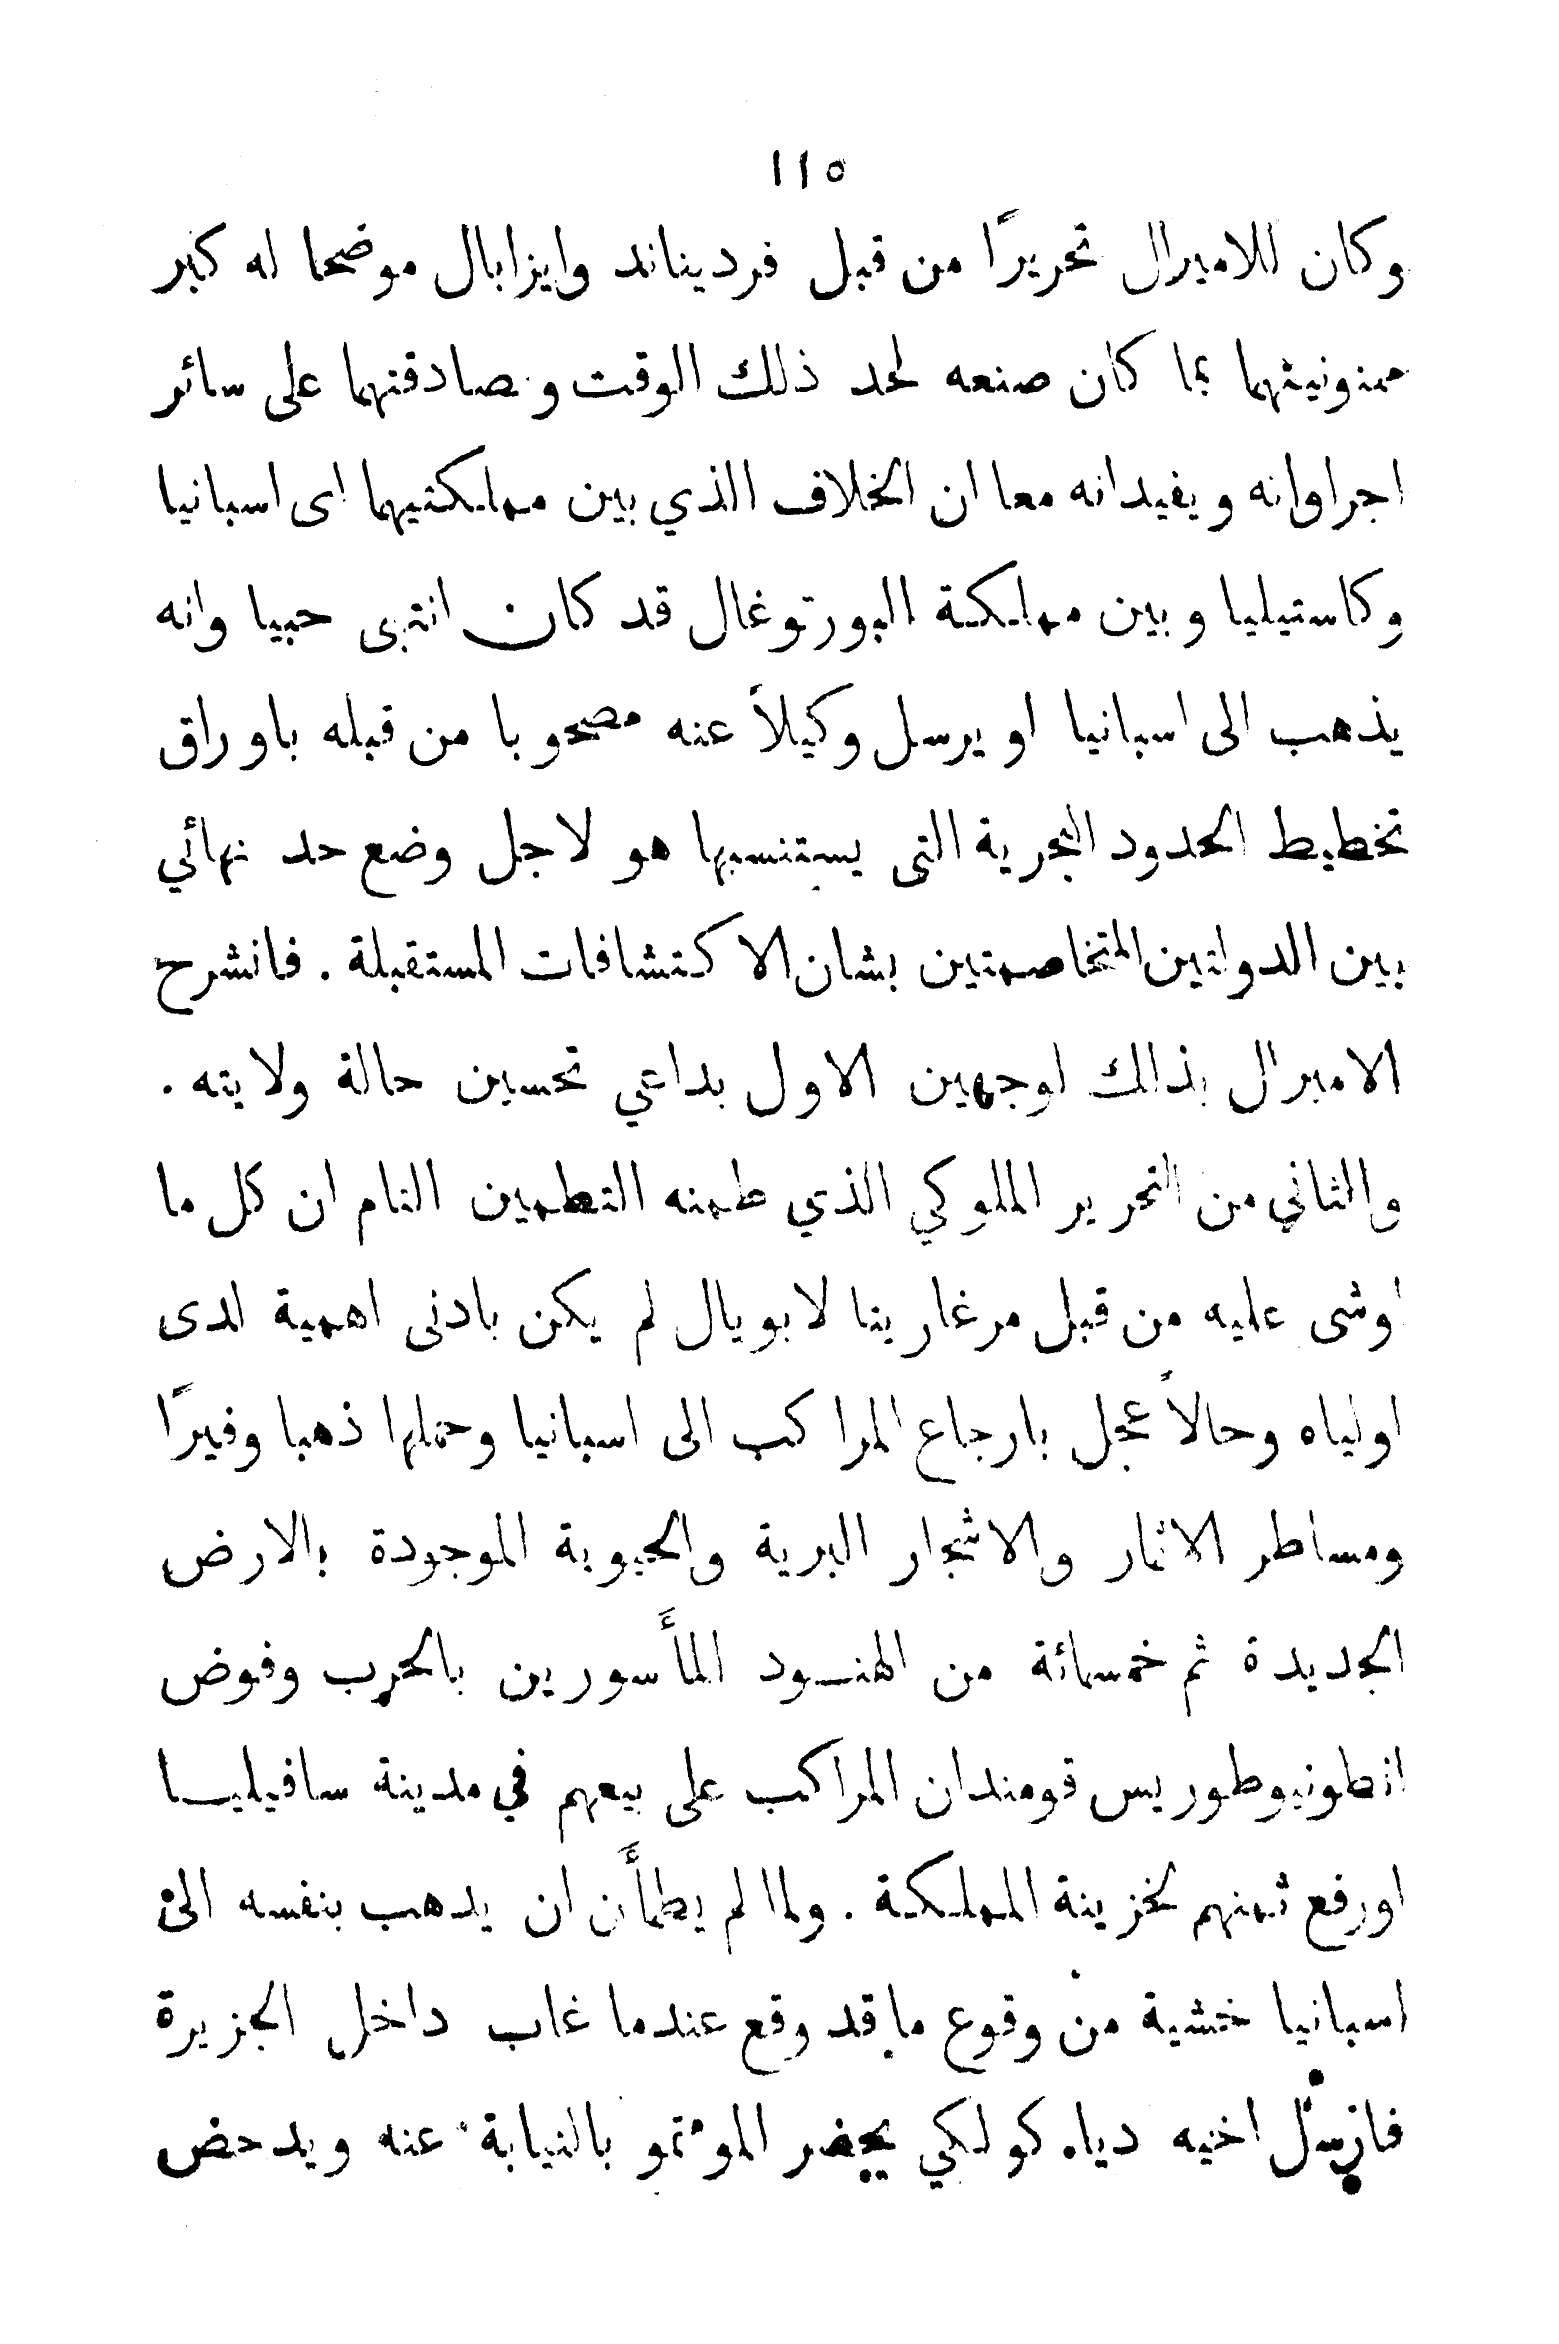 ١١٥
وكان للاميرال تحريرًا من قبل فرديناند وايزابال موضحا له كبر
ممنونيتهما بما كان صنعه لحد ذلك الوقت وبصادقتهما على سائر
اجراواته ويفيدانه معا ان الخلاف الذي بين مملكتيهما اى اسبانيا
وكاستيليا وبين مملكة البورتوغال قد كان انتهى حبيا وانه
يذهب الى اسبانيا او يرسل وكيلاً عنه مصحوبا من قبله باوراق
تخطيط الحدود البحرية التى يستنسبها هو لاجل وضع حد نهائي
بين الدولتين المتخاصمتين بشان الاكتشافات المستقبلة . فانشرح
الاميرال بذالك لوجهين الاول بداعي تحسين حالة ولايته .
والثاني من التحرير الملوكي الذي طمنه التطمين التام ان كل ما
اوشى عليه من قبل مرغارينا لابويال لم يكن بادنى اهمية لدى
اولياه وحالاً عجل بارجاع المراكب الى اسبانيا وحملها ذهبا وفيرًا
ومساطر الاثمار والاشجار البرية والحيوية الموجودة بالارض
الجديدة ثم خمسمائة من الهنود المأسورين بالحرب وفوض
انطونيوطوريس قومندان المراكب على بيعهم في مدينة سافيليا
اورفع ثمنهم لخزينة المملكة . ولما لم يطمأن ان يدهب بنفسه الى
اسبانيا خشية من وقوع ما قد وقع عندما غاب داخل الجزيرة
فارسل اخيه دياه كو لكي يحضر الموءتمو بالنيابة عنه ويدحض